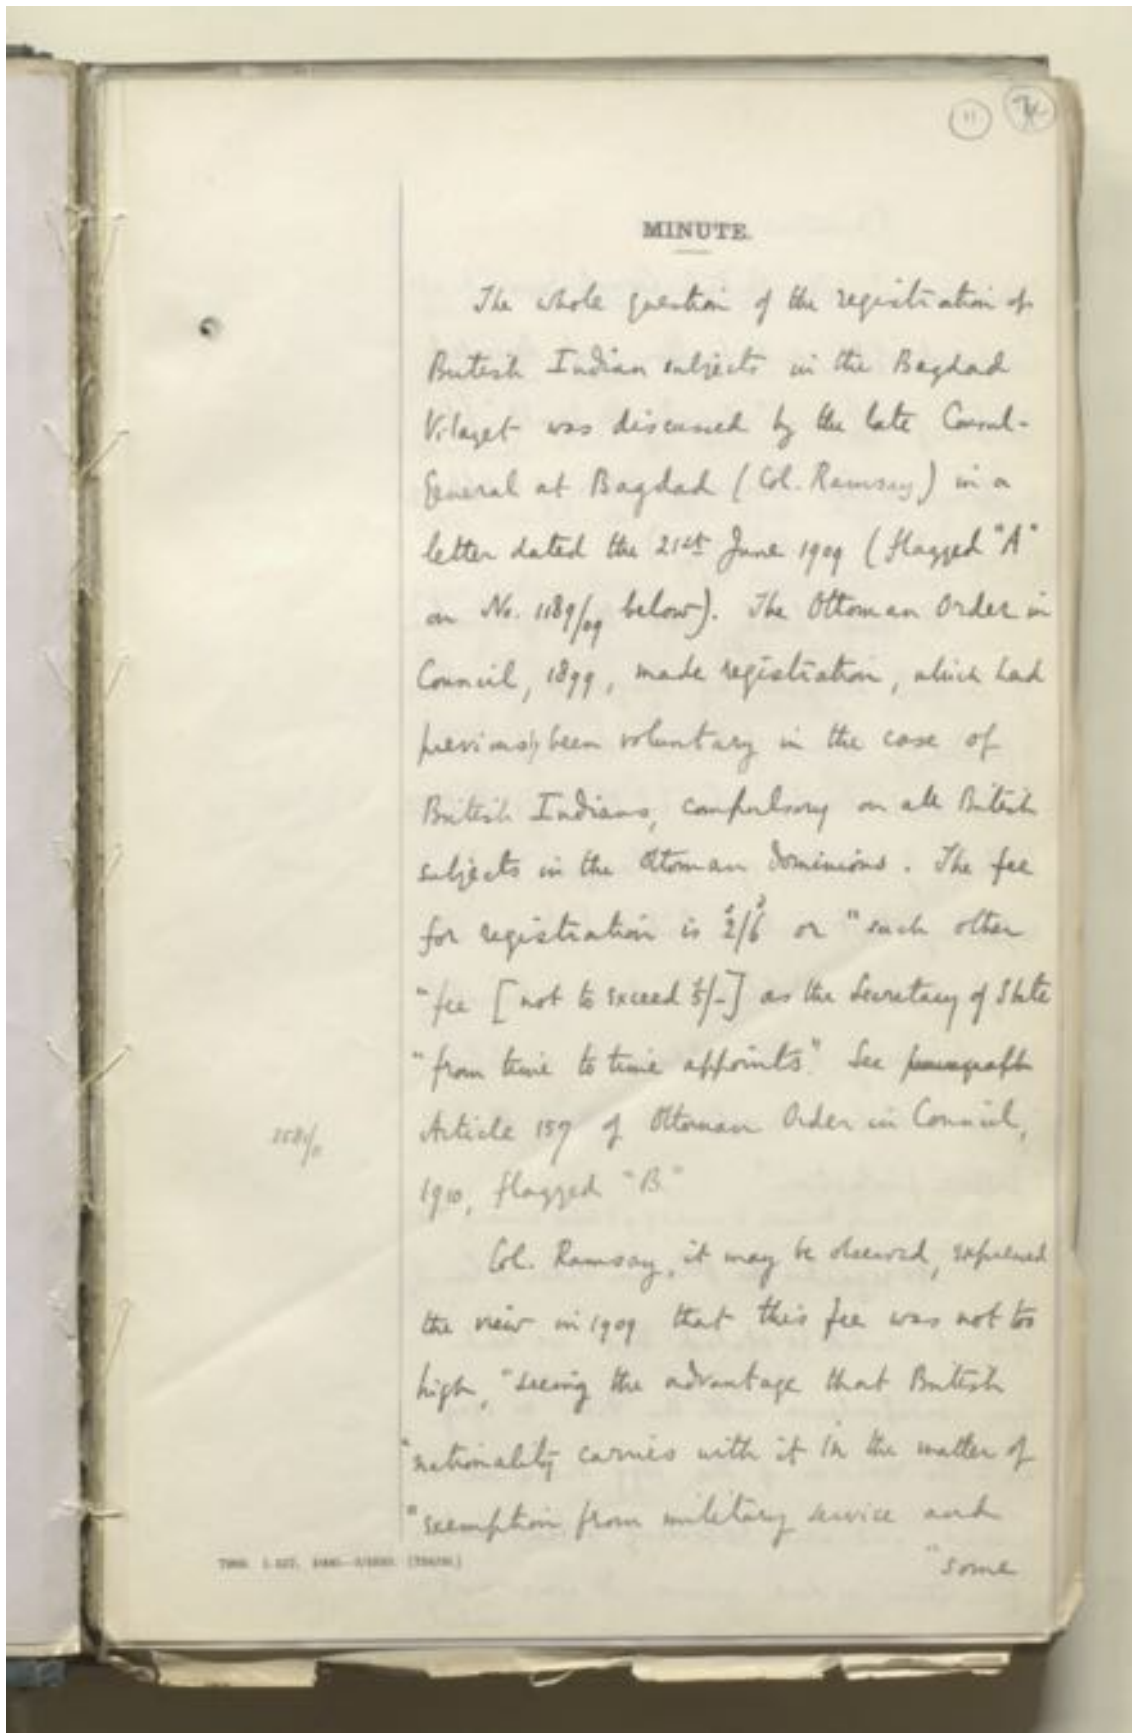 11
MINUTE.
The whole question of the registration of
British Indian subjects in the Bagdad
Vilayet was discussed by the late Consul-
General at Bagdad (Col. Ramsay) in a
letter dated the 21st June 1909 (flagged "A"
on No. 1189/09 below). The Ottoman Order in
Council, 1899, made registration, which had
previously been voluntary in the case of
British Indians, compulsory on all British
subjects in the Ottoman Dominions. The fee
for registration is 2s/6d or "such other
"fee [not to exceed 5s/-] as the Secretary of State
"from time to time appoints." See paragraph
Article 157 of Ottoman Order in Council,
1910, flagged "B."
Col. Ramsay, it may be observed, expressed
the view in 1909 that this fee was not too
high, "seeing the advantage that British
"nationality carries with it in the matter of
"exemption from military service and
"some